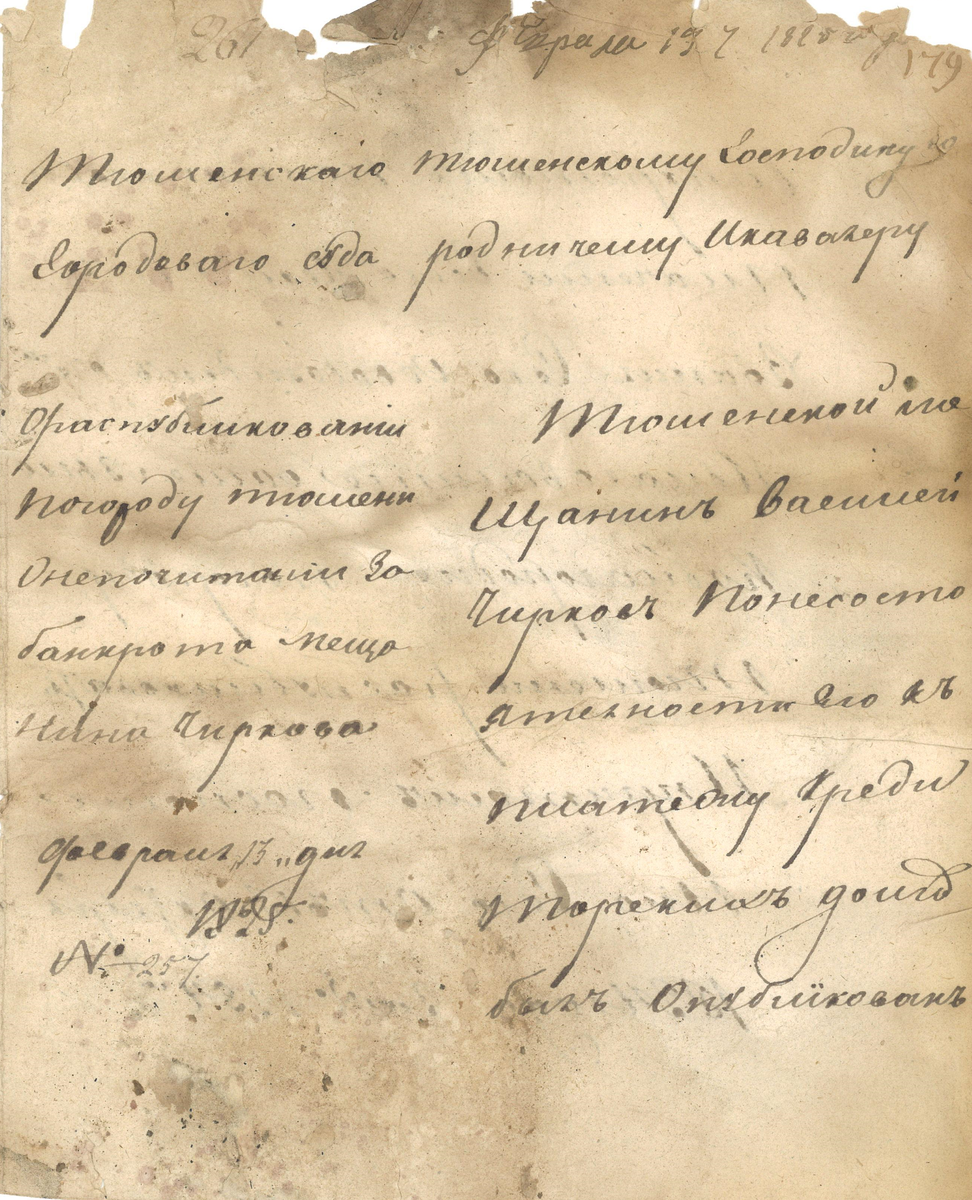 261
февраля 19 1825 года
179
Тюменскаго
Городоваго сѫда
Тюменскому Господину го
родничему Икавалеру
Ораспѫбликованіи
Погороду тюмени
Онепочитаніи За
банкрота меща
нина Чиркова
Февраля „13„ дня
1825.
№ 257
Тюменской ме
щанинъ Василей
Чирковъ Понесосто
ятельности Его къ
платежу Креди
торскихъ долгѡ
былъ Опѫбликованъ